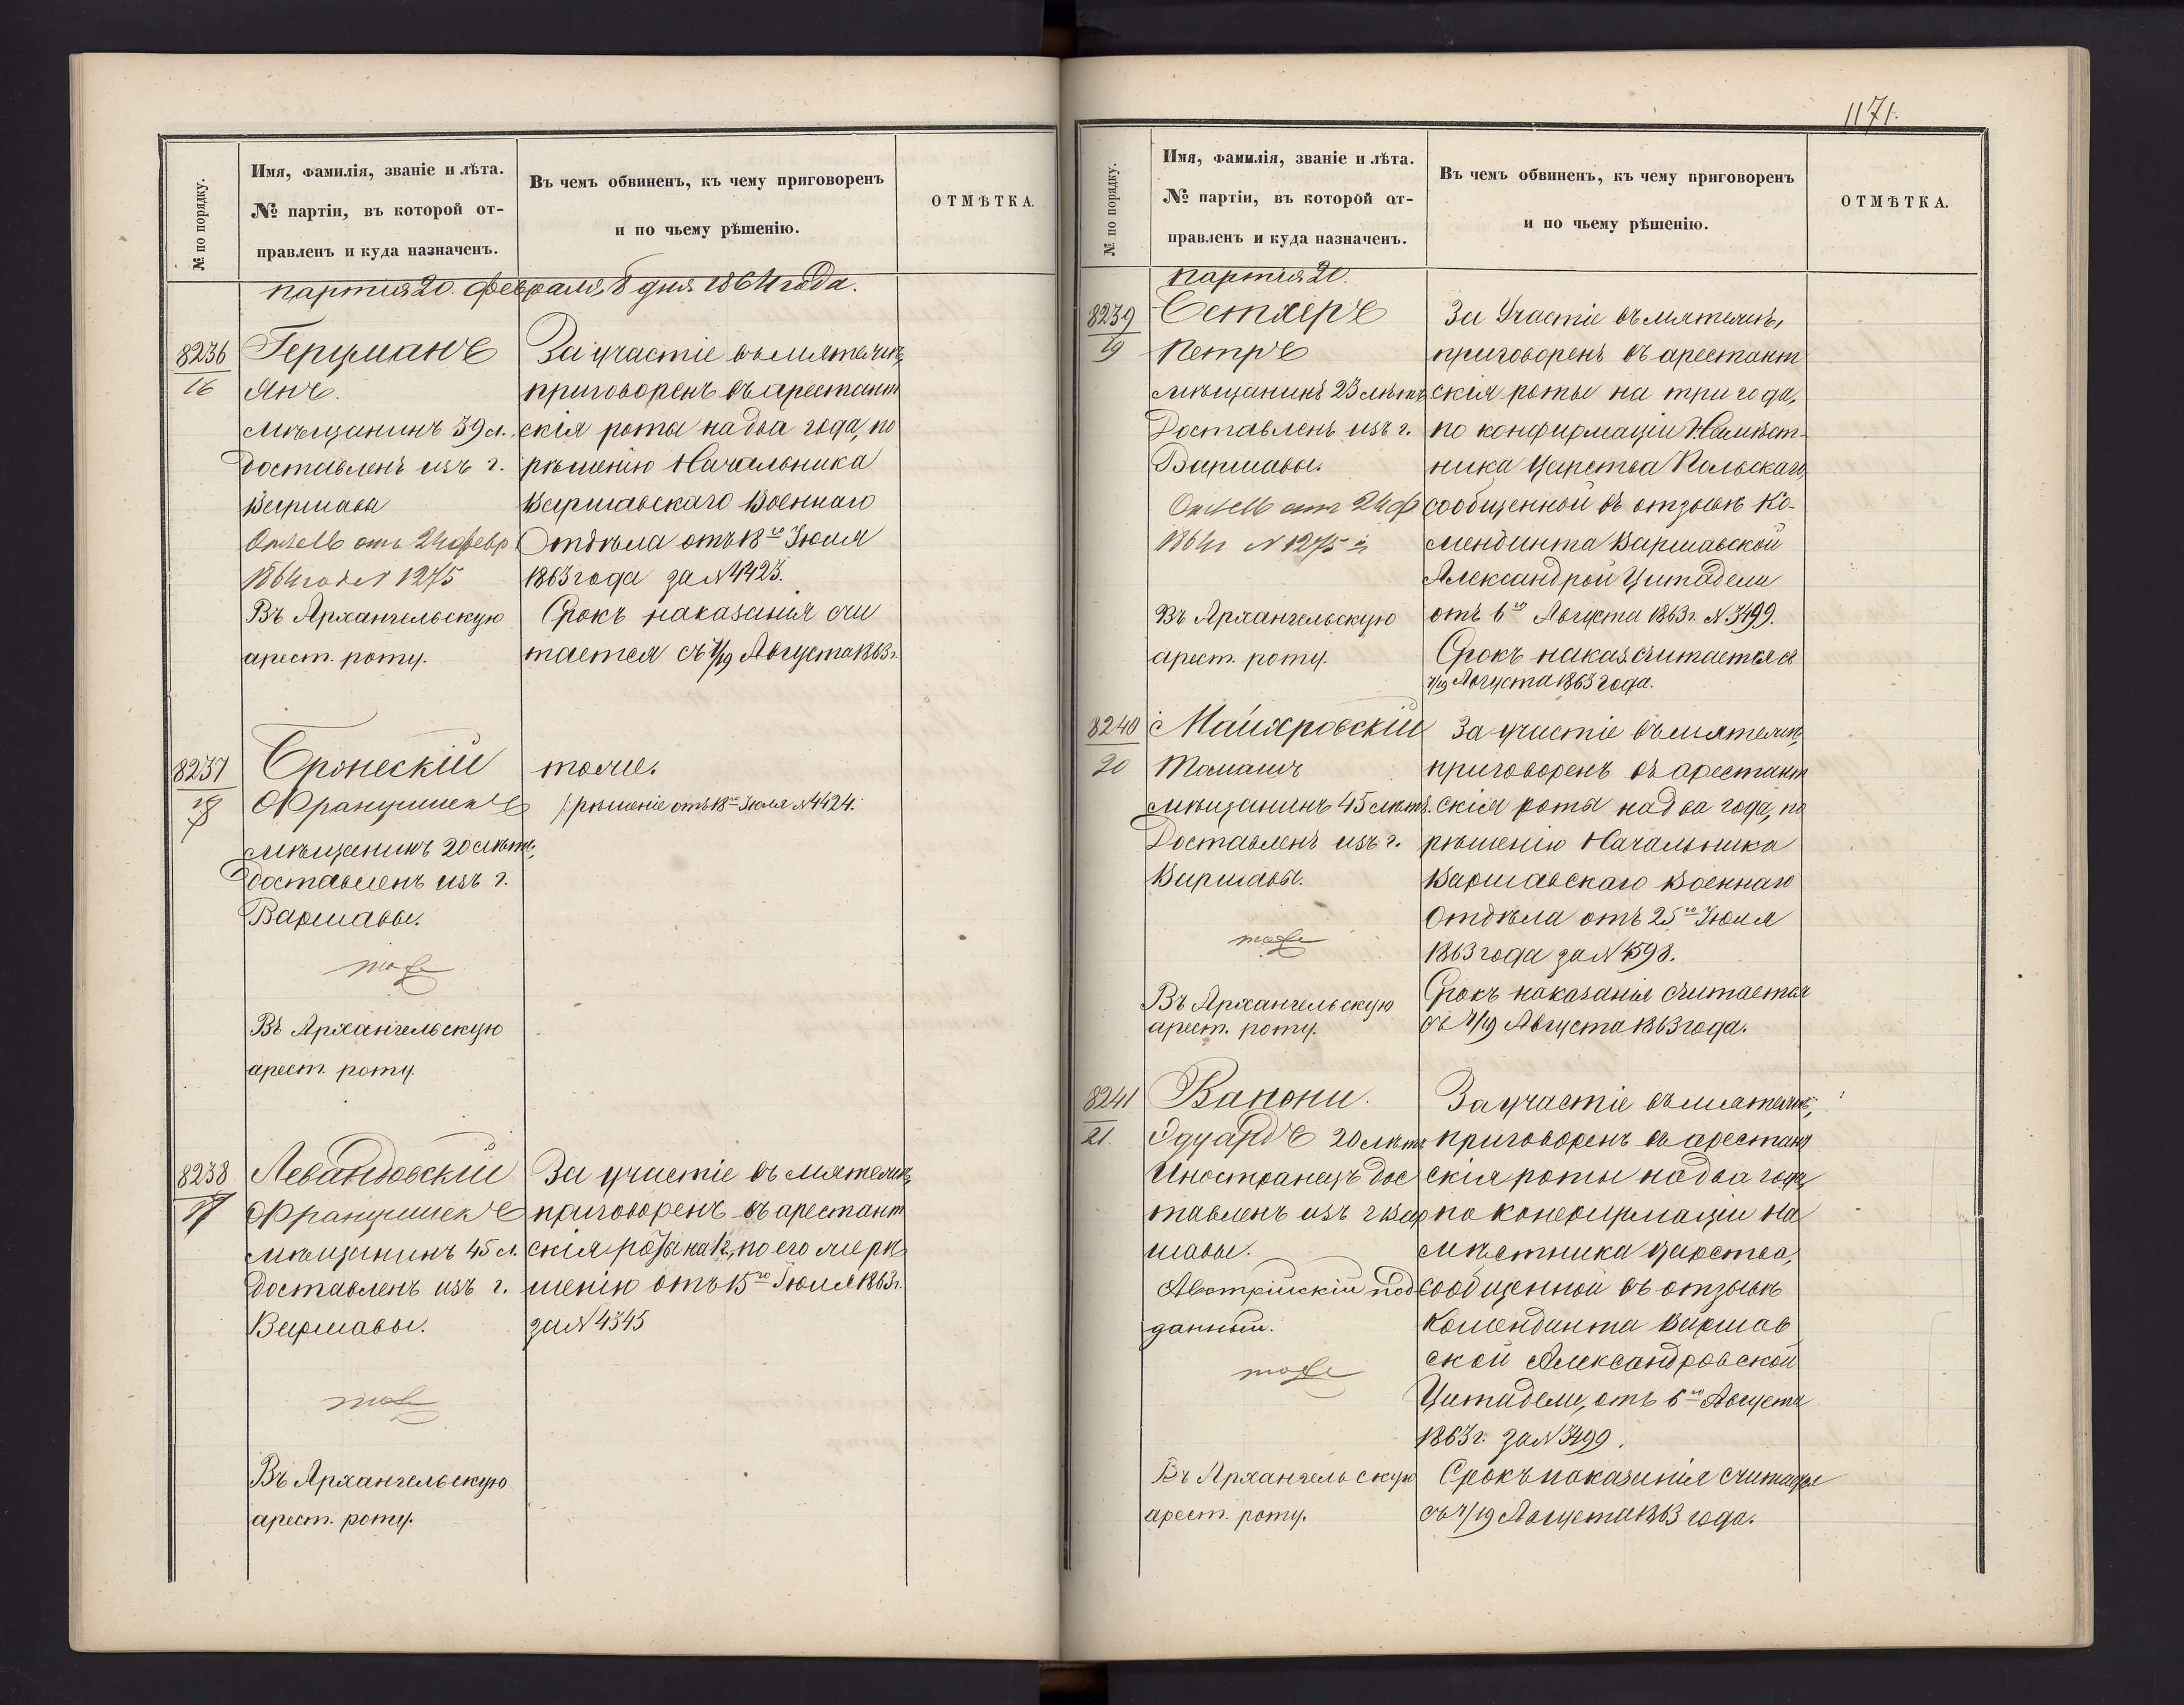 № по порядку.
Имя, фамилія, званіе и лѣта.
№ партіи, въ которой от-
правленъ и куда назначенъ.
Въ чемъ обвиненъ, къ чему приговоренъ
и по чьему рѣшенію.
ОТМѢТКА.
партія 20. февраля, 8 дня 1864 года.
8236
16
Герцманъ
Янъ.
мѣщанинъ 39 л.
доставленъ изъ г.
Варшавы
отъ 24 февр
1864 года № 1275
Въ Архангельскую
арест. роту.
За участіе въ мятежѣ,
приговоренъ въ арестант
скія роты на два года, по
рѣшенію Начальника
Варшавскаго Военнаго
Отдѣла отъ 18го Іюля
1863 года за № 4423.
Срокъ наказанія счи
тается съ 7/19 Августа 1863 г.
8237
Бронескій
Францишекъ
мѣщанинъ 20 лѣтъ,
доставленъ изъ г.
Варшавы.
тоже
Въ Архангельскую
арест. роту.
тоже.
рѣшеніе отъ 18го Іюля № 4424.
8238
Левандовскій
Францишекъ
мѣщанинъ 45 л.
доставленъ изъ г.
Варшавы.
тоже
Въ Архангельскую
арест. роту.
За участіе въ мятежѣ,
приговоренъ въ арестант
скія роты на 1 г., по его же рѣ
шенію отъ 15го Іюля 1863 г.
за № 4345
1171.
№ по порядку.
Имя, фамилія, званіе и лѣта.
№ партіи, въ которой от-
правленъ и куда назначенъ.
Въ чемъ обвиненъ, къ чему приговоренъ
и по чьему рѣшенію.
ОТМѢТКА.
партія 20.
8239
19
Сетлеръ
Петръ
мѣщанинъ 23 лѣтъ
Доставленъ изъ г.
Варшавы.
отъ 24 ф
1864 г № 1275
Въ Архангельскую
арест. роту.
За участіе въ мятежѣ,
приговоренъ въ арестант
скія роты на три года,
по конфирмаціи Намѣст-
ника Царства Польскаго,
сообщенной въ отзывѣ Ко-
менданта Варшавской
Александрой Цитадели
отъ 6го Августа 1863 г. № 3499.
Срокъ наказ. считается съ
7/19 Августа 1863 года.
8240
20
Майхровскій
Томашъ
мѣщанинъ 45 лѣтъ.
Доставленъ изъ г.
Варшавы.
тоже
Въ Архангельскую
арест. роту.
За участіе въ мятежѣ,
приговоренъ въ арестант
скія роты на два года, по
рѣшенію Начальника
Варшавскаго Военнаго
Отдѣла отъ 25го Іюля
1863 года за № 4598.
Срокъ наказанія считается
съ 7/19 Августа 1863 года.
8241
21.
Ванони.
Эдуардъ 20 лѣтъ
Иностранецъ дос
тавленъ изъ г Вар
шавы.
Австрійскій под
данный.
тоже
Въ Архангельскую
арест. роту.
За участіе въ мятежѣ,
приговоренъ въ арестант
скія роты на два года,
по конфирмаціи На
мѣстника Царства,
сообщенной въ отзывѣ
Коменданта Варшав
ской Александровской
Цитадели, отъ 6го Августа
1863 г. за № 3499.
Срокъ наказанія считается
съ 7/19 Августа 1863 года.